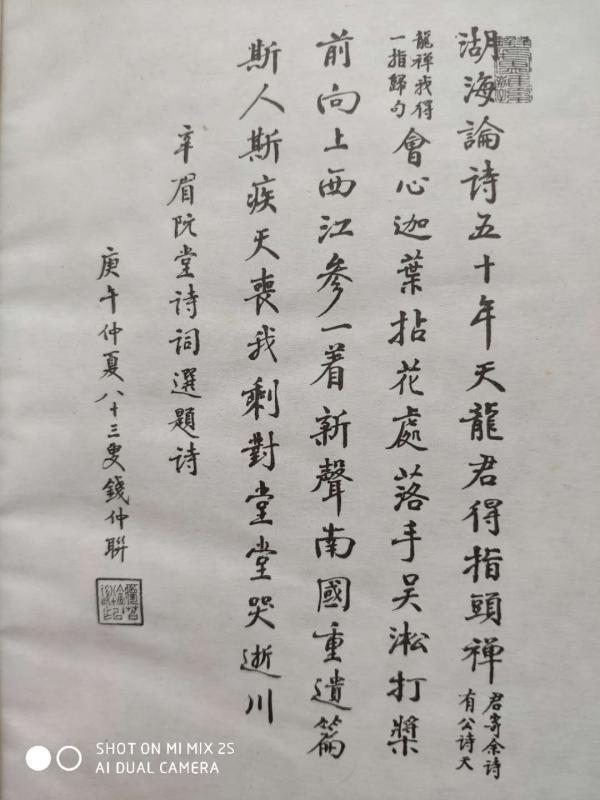 湖海論詩五十年天龍君得指頭禪君寄余詩有公詩天
龍禪我得一指歸句會心迦葉拈花處落手吳淞打槳
前向上西江參一着新聲南國重遺篇
斯人斯疾天喪我剩對堂堂哭逝川
辛眉阮堂詩詞選題詩
庚午仲夏八十三叟錢仲聯
SHOT ON MI MIX 2S
AI DUAL CAMERA